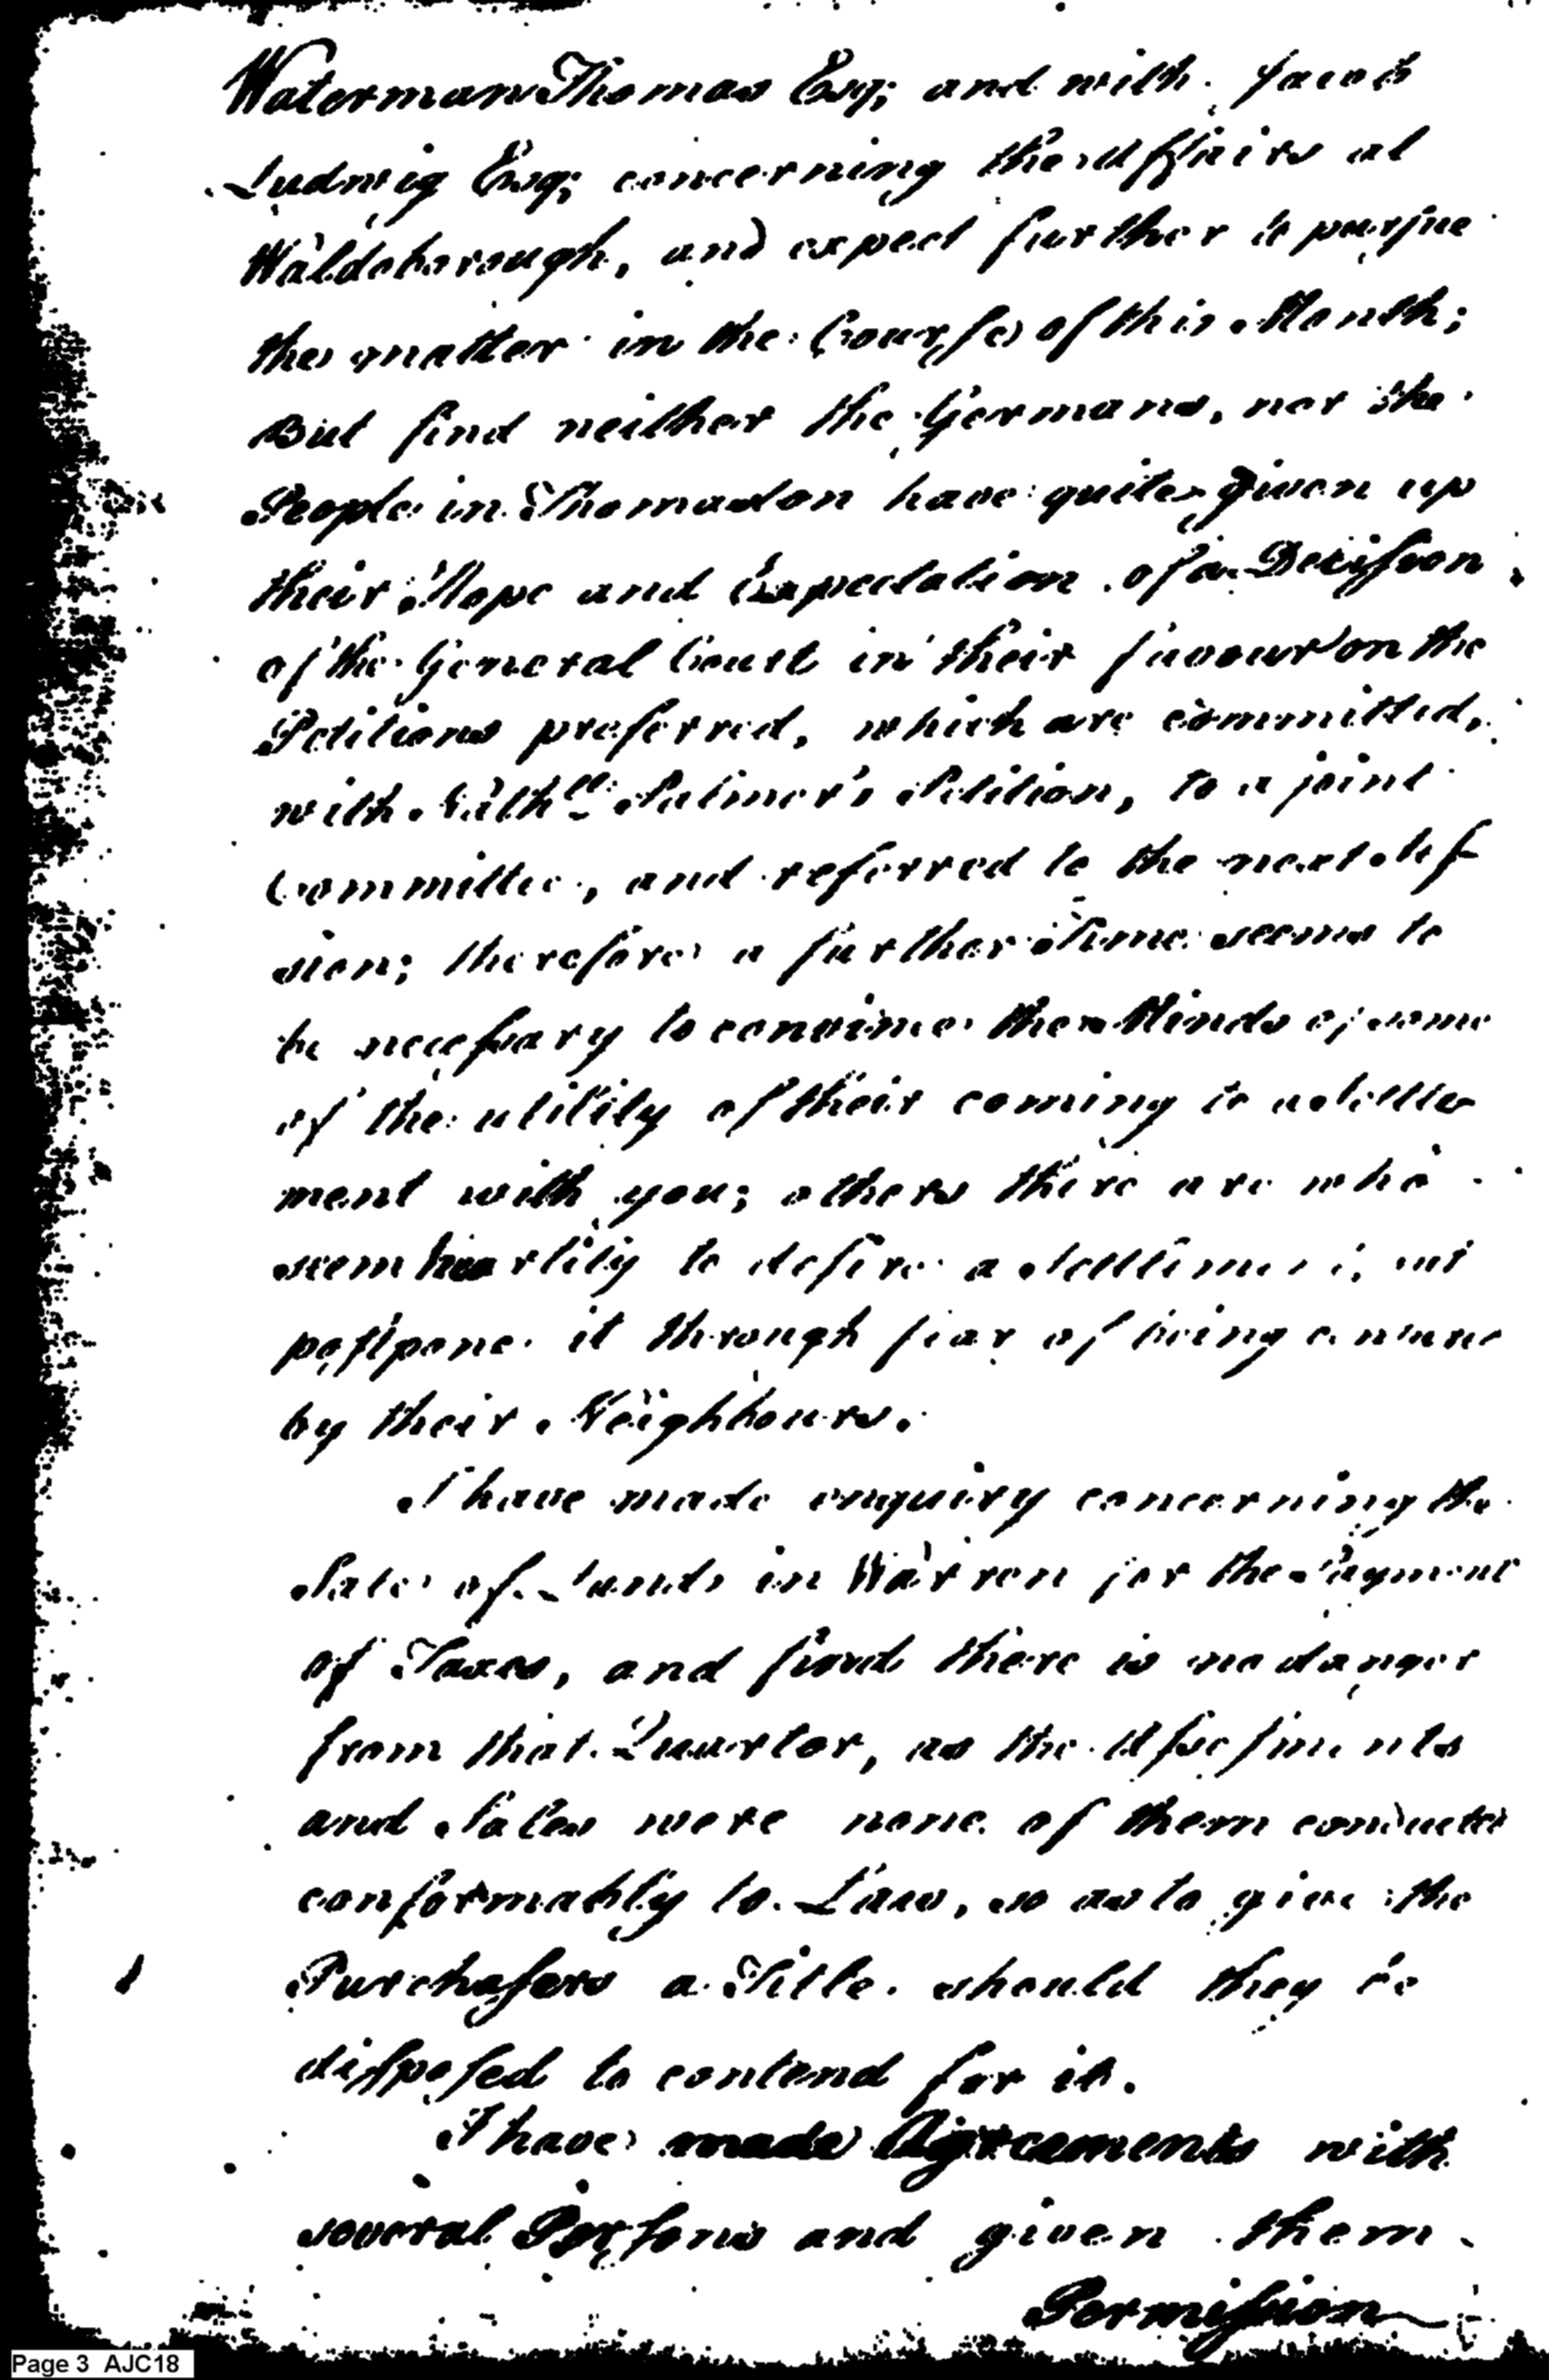 Waterman Thomas Esq; and with Jacob
Ludwig Esq; concerning the Affairs at
Waldoborough, and expect further to pursue
the matter in the Course of this Month;
But find neither the Germans, nor the
People in Thomaston have quite given up
their Hope and Expectation of a Decission
of the General Court in their favour on the
Petitions preferred, which are committed,
with Nathll Palmer's Petition, to a joint
Committee, and referred to the next Ses
sion; therefore a further Time seems to
be necessary to convince the Minds of some
of the utility of their coming to a Settle
ment with you; others there are who
seem heartily to desire a Settlement, but
postpone it through fear of being
by their Neighbours.
I have made enquiry concerning the
Sale of Lands in Warren for the Payment
of Taxes, and find there is no danger
from that Quarter, as the Assessments
and Sales were none of them conducted
conformably to Law, so as to give the
Purchasers a Title should they be
disposed to contend for it.
I have made Agreements with
several Persons and given them
Permission
Page 3 AJC18